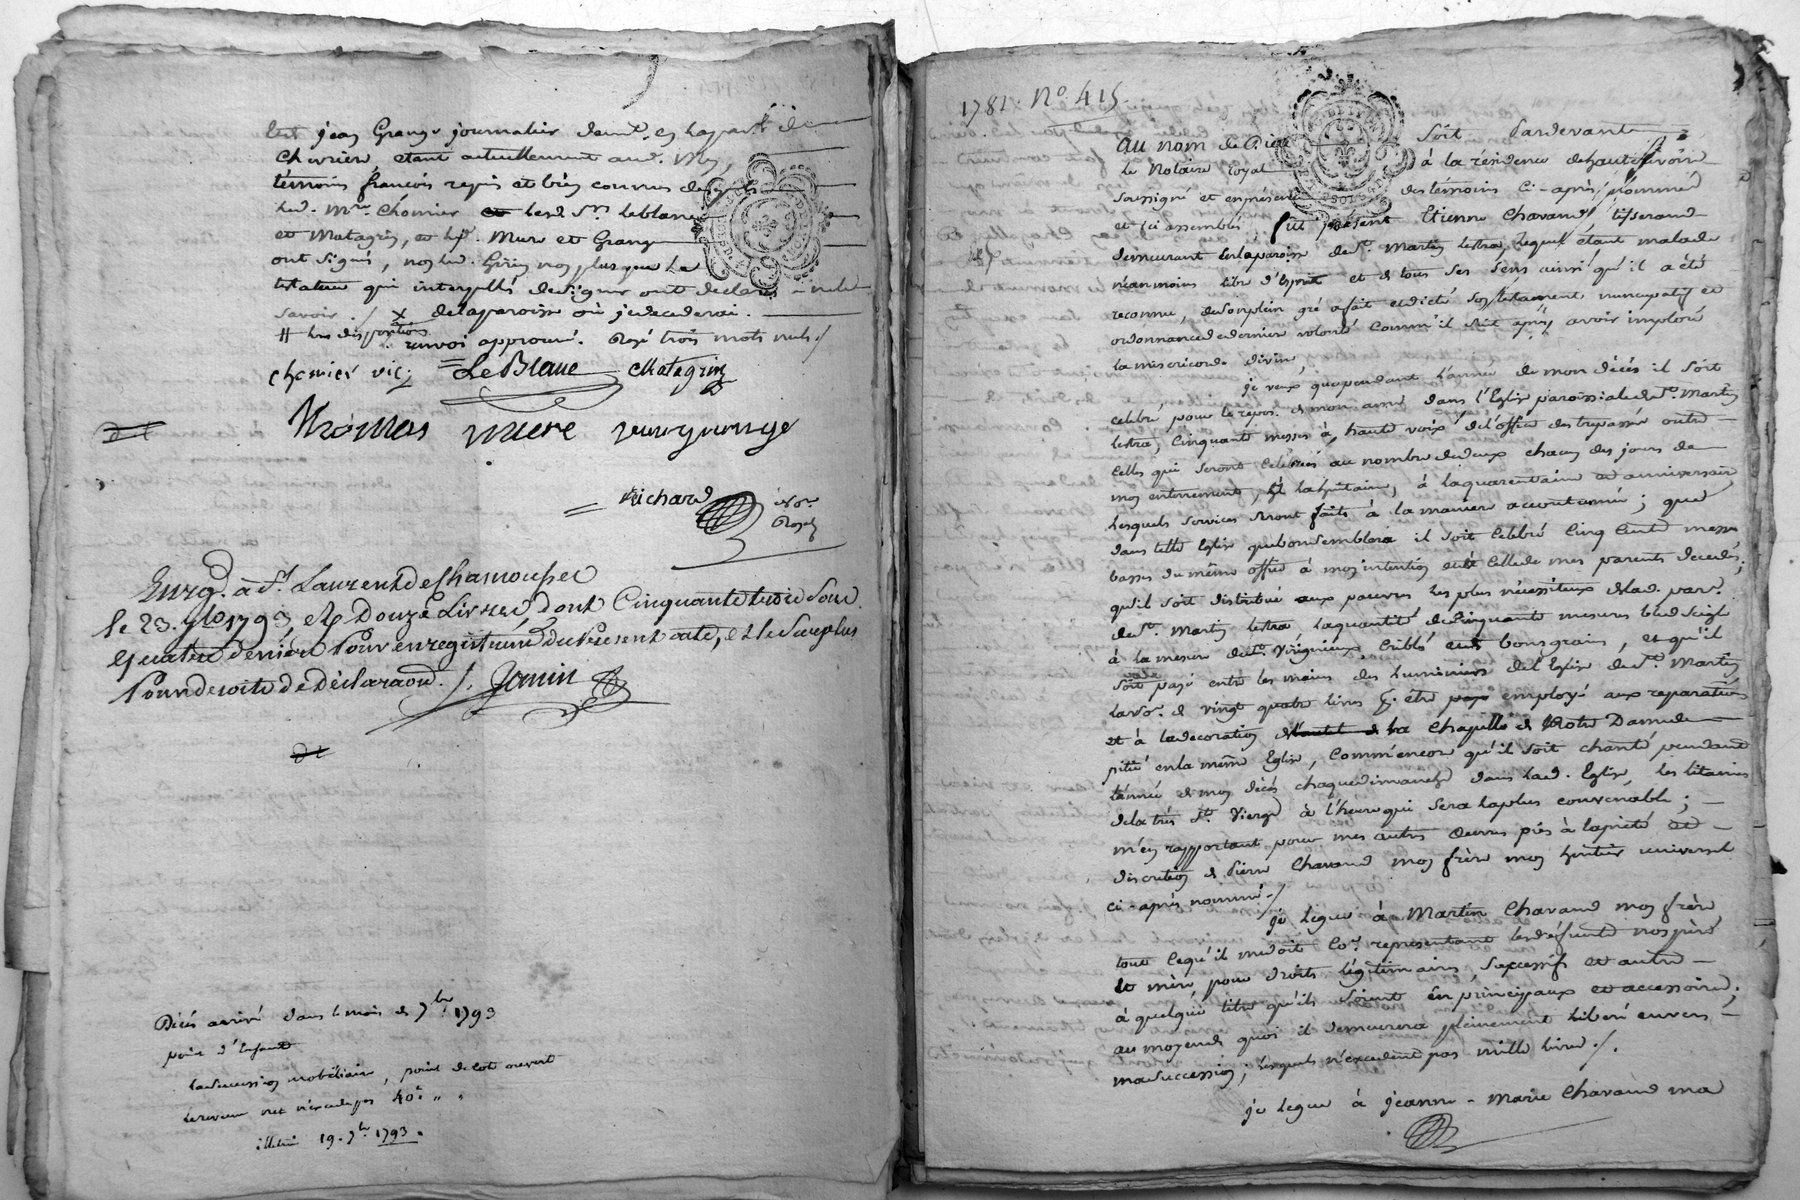 Jean Grange journalier
Chevrier, etant actuellement aud.
témoins françois requis et bien connus
led. Mre. Chonier et lesd Srs. leblanc
et Matagrin, et led. Mure et Grange
ont signés, non led. non plus que le
testateur qui interpellés de signer ont declaré ne le
savoir ./ X de la paroisse où je decederai.
renvoi approuvé. Rayé trois mots nuls ./
vic: LeBlanc Matagrin
Thomas mure jean grange
Richard Nore.
Royal
Enrgé. à St. Laurent de Chamousset
le 23. 7bre 1793, Douze Livres, dont Cinquante trois Sous
quatre deniers Pour enregistrement du Present acte, et le Surplus
Pour droits de Déclaraon. /. Jamin
Décès arrivé dans le mois de 7bre 1793
point d'Enfants
la succession mobiliaire, point de lot ouvert
le revenu net n'excede pas 40#
19. 7bre. 1793.
1781. No. 415.
Au nom de Dieu Soit Pardevant
le Notaire royal à la résidence de hauterivoire
soussigné et en présence des témoins ci-après nommés
et ici assemblés, fut présent Etienne Chavand tisserand
demeurant en la paroisse de St. Martin lestra, lequel étant malade
néanmoins libre d'Esprit et de tous ses sens ainsi qu'il a été
reconnu, de son plein gré a fait et dicté son testament nuncupatif et
ordonnance de derniere volonté comm'il suit après avoir imploré
la misericorde divine
je veux que pendant l'année de mon décès il soit
celebré pour le repos de mon ame dans l'Eglise paroissiale de St. Martin
lestra, cinquante messes à haute voix de l'office des trepassés outre
celles qui seront celebrées au nombre de deux chacun des jours de
mon enterrement, huitaine, à la quarantaine et anniversaire,
lesquels services seront faits à la maniere accoutumée; que
dans telle Eglise que bon semblera il soit celebré cinq cents messes
basses du même office à mon intention et à celle de mes parents decedés;
qu'il soit distribué aux pauvres les plus nécessiteux de lad. parse.
de St. Martin lestra la quantité de cinquante mesures bled seigle
à la mesure de criblé et bons grains, et qu'il
soit payé entre les mains des Luminiers de l'Eglise de St. Martin
la somme de vingt quatre livres pr. être employé aux reparations
et à la decoration de la chapelle de Notre Dame de
pitié en la même Eglise, comm'encore qu'il soit chanté pendant
l'année de mon décès chaque dimanche dans lad. Eglise, les litanies
de la très Ste. Vierge à l'heure qui sera la plus convenable;
m'en rapportant pour mes autres oeuvres pies à la pieté et
discretion de Pierre Chavand mon frère mon heritier universel
ci-après nommé ./
je legue à Martin Chavand mon frère
tout ce qu'il me doit comme representant les défunts nos père
et mère pour droits légitimaires, successifs et autres
à quelque titre qu'ils soient en principaux et accessoires;
au moyen de quoi il demeurera pleinement liberé envers
ma succession; lesquels n'excedent pas mille livres ./.
je legue à jeanne-Marie Chavand ma